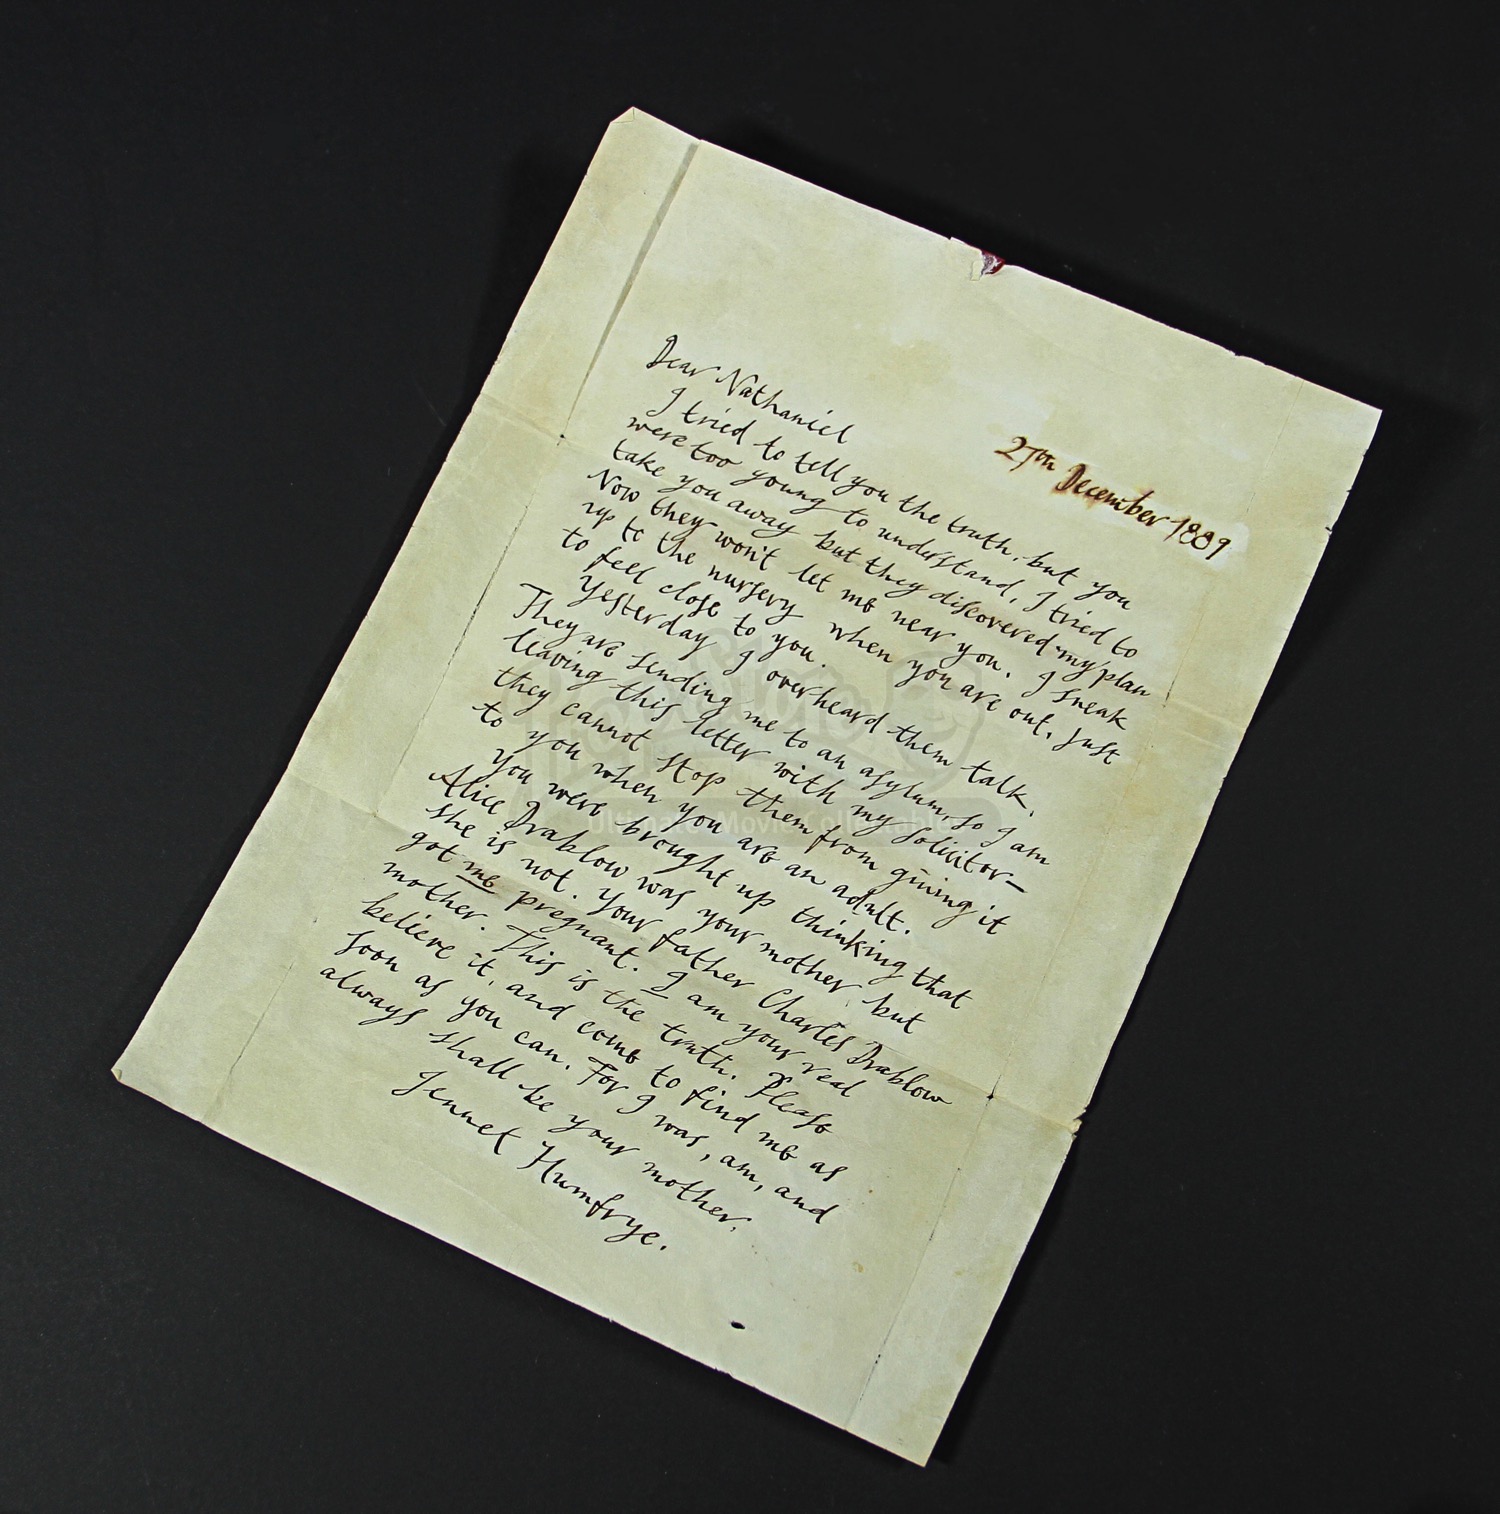 Dear Nathaniel
27th December 1889
I tried to tell you the truth, but you
were too young to understand, I tried to
take you away but they discovered my plan
Now they won't let me near you. I sneak
up to the nursery when you are out, just
to feel close to you.
Yesterday I overheard them talk.
They are sending me to an asylum, so I am
leaving this letter with my solicitor—
they cannot stop them from giving it
to you when you are an adult.
You were brought up thinking that
Alice Drablow was your mother, but
she is not. Your father Charles Drablow
got me pregnant. I am your real
mother. This is the truth. Please
believe it, and come to find me as
soon as you can. For I was, am, and
always shall be your mother.
Jennet Humfrye.
Ultimate Movie Collectables